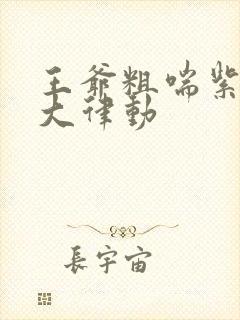 王爷粗喘紫
大律动
長宇宙